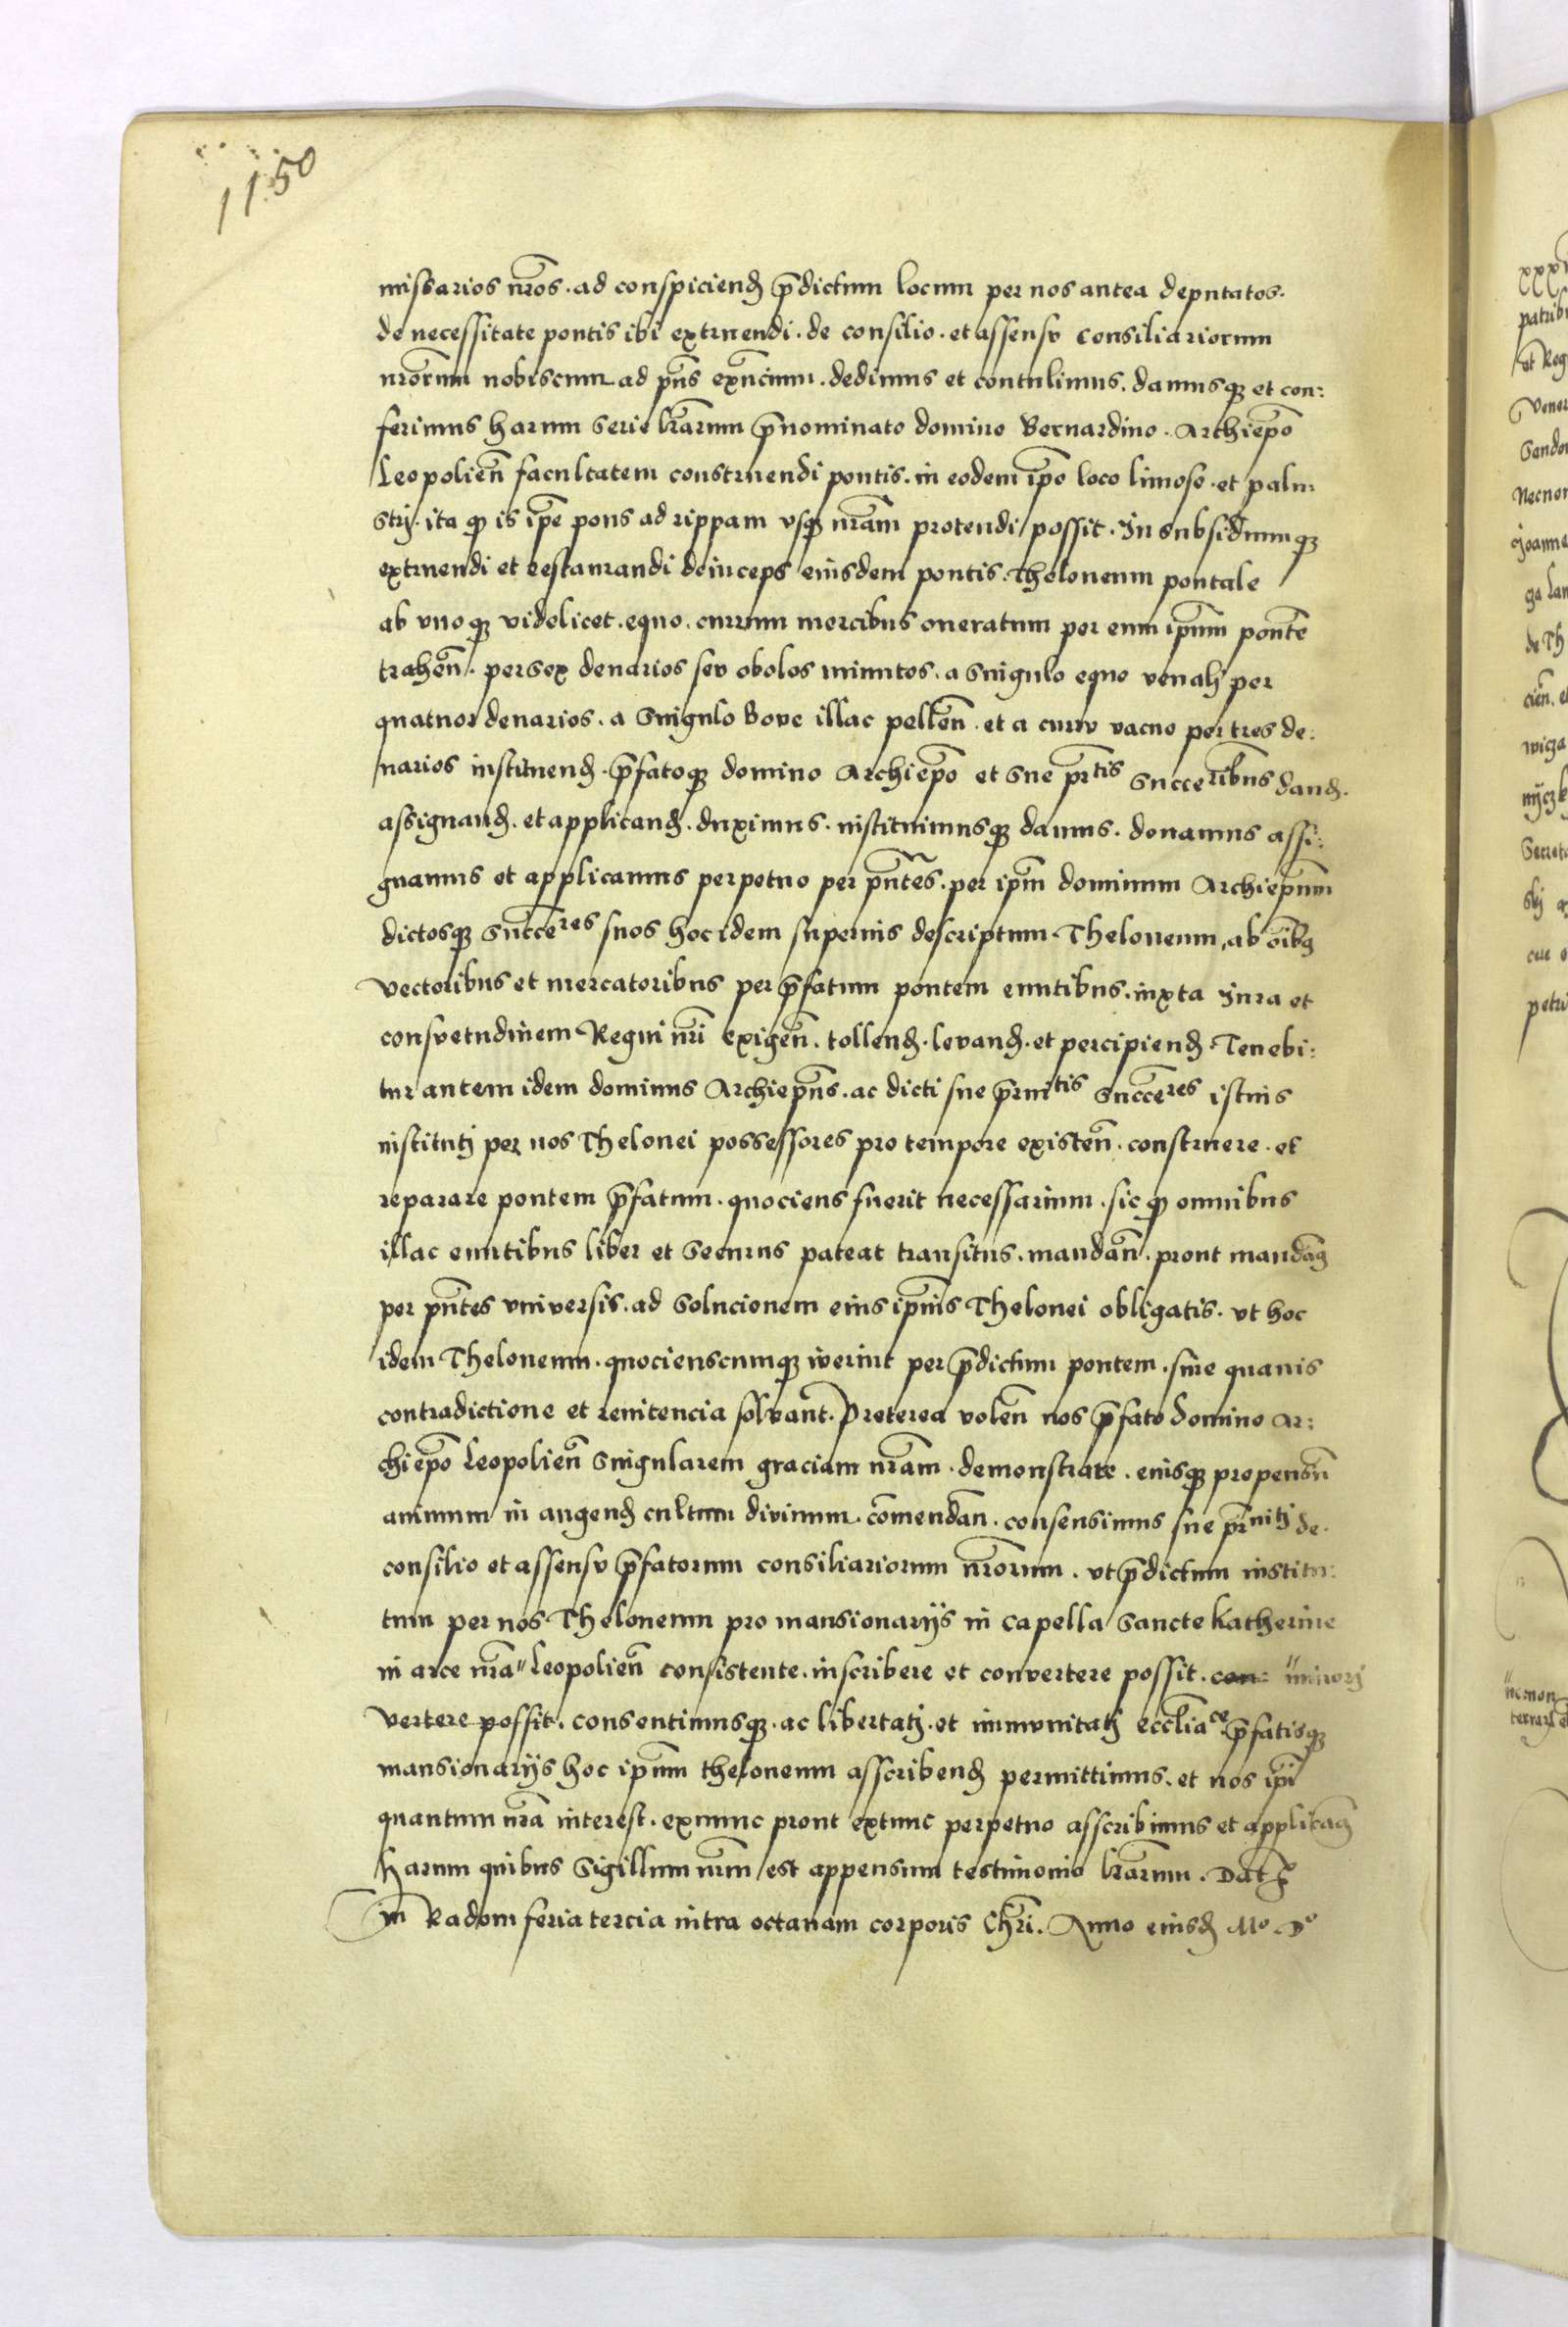 1150
missarios nr̄os. ad conspiciend̨ p̄dictum locum per nos antea deputatos.
de necessitate pontis ibi extruendi. de consilio. et assensu consiliariorum
nr̄orum nobiscum ad pn̄s exn̄cium. dedimus et contulimus. damusq̨ et con:
ferimus harum serie lr̄arum p̄nominato domino Bernardino. Archiep̄o
Leopolien̄ facultatem construendi pontis. in eodem ip̄o loco limoso. et palu:
strj. ita q̨ is ip̄e pons ad rippam vsq̨ nr̄am protendi possit. In subsidiumq̨
extruendi et restaurandi deinceps eiusdem pontis. Theloneum pontale
ab vnoq̨ videlicet. equo. currum mercibus oneratum per eum ip̄um ponte̅
trahen̄. per sex denarios seu obolos minutos. a singulo equo venali per
quatuor denarios. a singulo bove illac pellen̄. et a curru vacuo per tres de:
narios instituend̨. p̄fatoq̨ domino Archiep̄o et sue pr̄tis succeribus dand̨.
assignand̨. et applicand̨. duximus. instituimusq̨ damus. donamus assi:
gnamus et applicamus perpetuo per pn̄tes. per ip̄m dominum Archiep̄um
dictosq̨ succeres suos hoc idem superius descriptum Theloneum, ab oi̅bq̨
vectoribus et mercatoribus per p̄fatum pontem euntibus. iuxta Jura et
consvetudinem Regni nr̄i exigen̄. tollend̨. levand̨. et percipiend̨. Tenebi:
tur autem idem dominus Archiep̄us. ac dicti sue pr̄nitis succeres istius
institutj per nos Thelonei possessores pro tempore existen̄. construere. et
reparare pontem p̄fatum. quociens fuerit necessarium. sic q̨ omnibus
illac euntibus liber et securus pateat transitus. mandan̄. prout mandam̨
per pn̄tes vniversis. ad solucionem eius ip̄ius Thelonei obligatis. vt hoc
idem Theloneum. quocienscumq̨ iverint per p̄dictum pontem. sine quavis
contradictione et renitencia solvant. Preterea volen̄ nos p̄fato domino Ar:
chiep̄o Leopolien̄ singularem graciam nr̄am. demonstrare. eiusq̨ propensu̅
animum in augend̨ cultum divinum. com̄endan̄. consensimus sue pr̄nitj de.
consilio et assensu p̄fatorum consiliariorum nr̄orum. vt p̄dictum institu:
tum per nos Theloneum pro mansionarijs in capella sancte Katherine
in arce nr̄a" Leopolien̄ consistente. inscribere et convertere possit. con: "minorj
vertere possit. consentimusq̨. ac libertatj. et immunitatj eccl̄iace p̄fatisq̨
mansionarijs hoc ip̄um theloneum asscribend̨ permittimus. et nos ip̄i
quantum nr̄a interest. exnunc prout extunc perpetuo asscribimus et applicam̨
harum quibus sigillum nr̄m est appensum testimonio lr̄arum. Dat̨
in Radom feria tercia intra octavam corporis Chr̄i. Anno eiusd̨ Mo Do